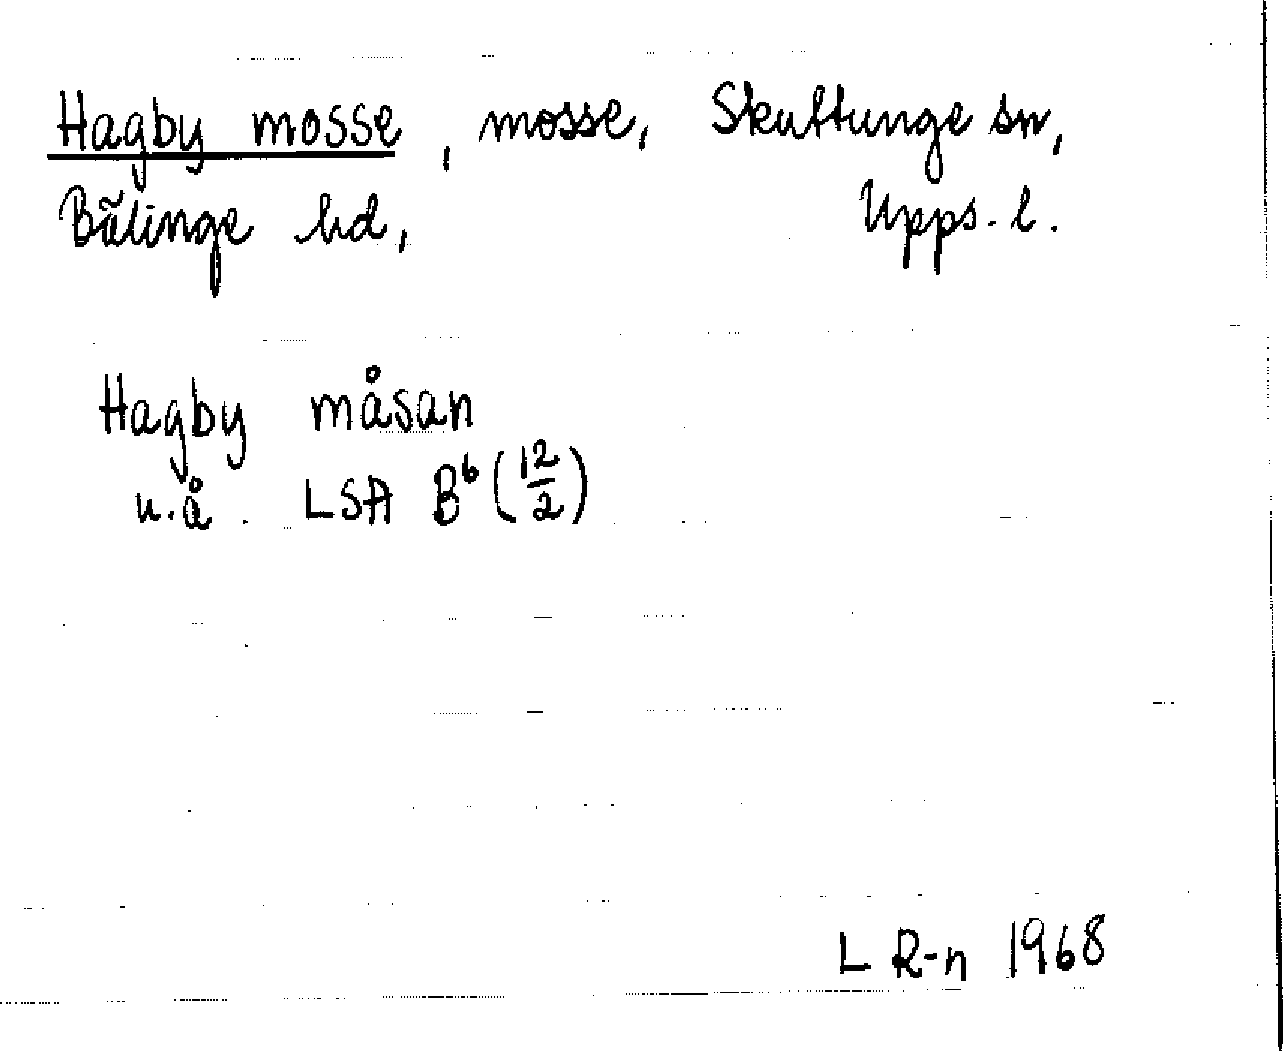 Hagby mosse, mosse, Skuttunge sn,
Bälinge hd, Upps. l.
Hagby måsan
u.å. LSA B⁶ (12/2)
L R-n 1968